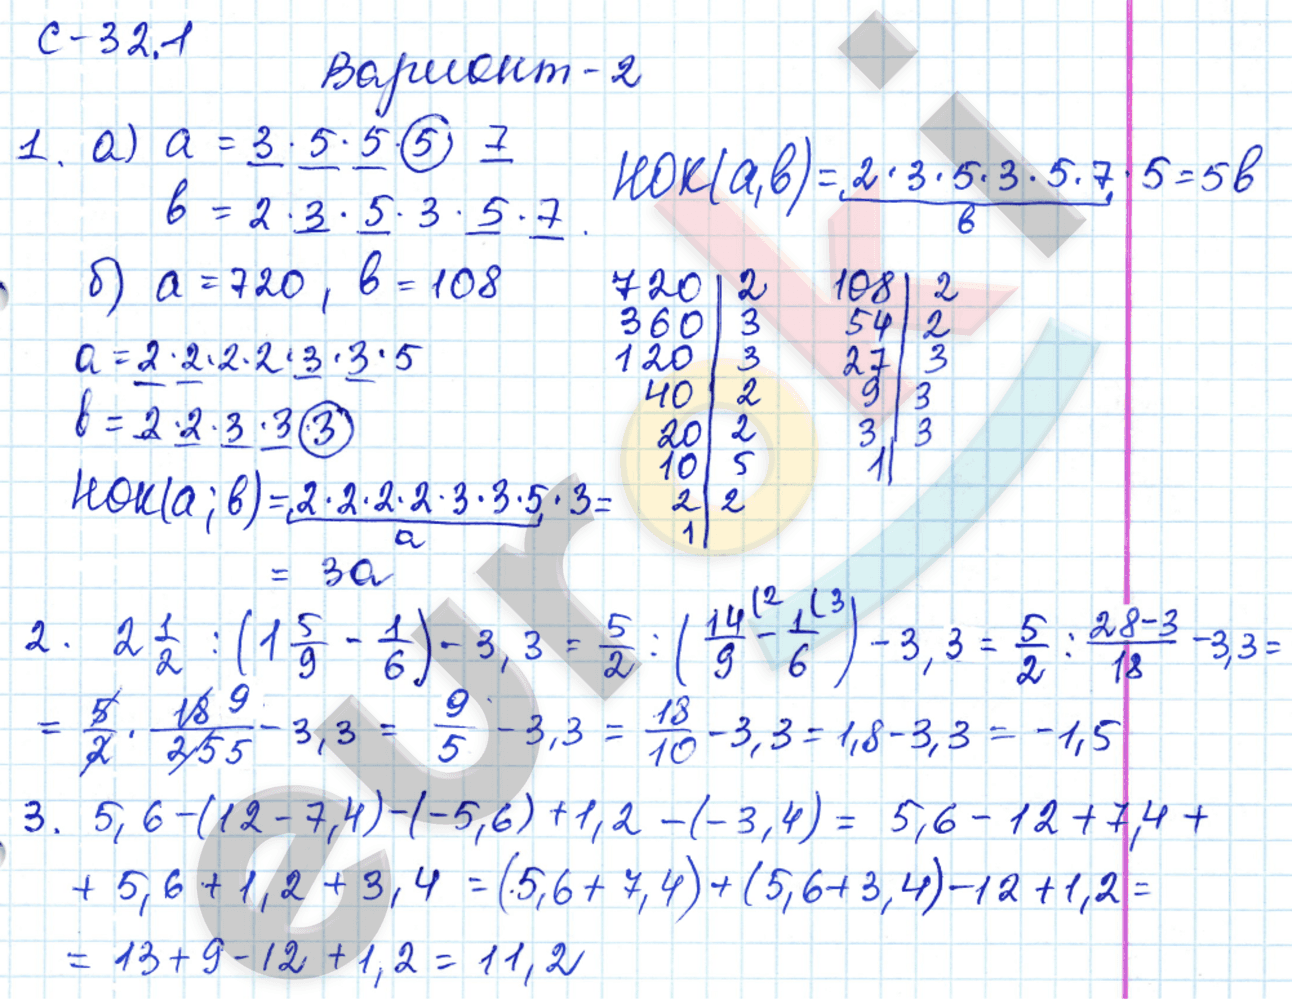 С-32.1
Вариант-2
1. а) a = 3 · 5 · 5 · 5 7
НОК(a,b) = 2 · 3 · 5 · 3 · 5 · 7 · 5 = 5b
b
b = 2 · 3 · 5 · 3 · 5 · 7.
б) a = 720, b = 108
720 | 2
360 | 3
120 | 3
40 | 2
20 | 2
10 | 5
2 | 2
1
108 | 2
54 | 2
27 | 3
9 | 3
3 | 3
1
a = 2 · 2 · 2 · 2 · 3 · 3 · 5
b = 2 · 2 · 3 · 3 3
НОК(a; b) = 2 · 2 · 2 · 2 · 3 · 3 · 5 · 3 =
a
= 3a
2. 2 1/2 : (1 5/9 - 1/6) - 3,3 = 5/2 : (14/9 (2 - 1/6 (3) - 3,3 = 5/2 : 28-3/18 - 3,3 =
= 5/2 · 18 9/25 5 - 3,3 = 9/5 - 3,3 = 18/10 - 3,3 = 1,8 - 3,3 = -1,5
3. 5,6 - (12 - 7,4) - (-5,6) + 1,2 - (-3,4) = 5,6 - 12 + 7,4 +
+ 5,6 + 1,2 + 3,4 = (5,6 + 7,4) + (5,6 + 3,4) - 12 + 1,2 =
= 13 + 9 - 12 + 1,2 = 11,2
euroki